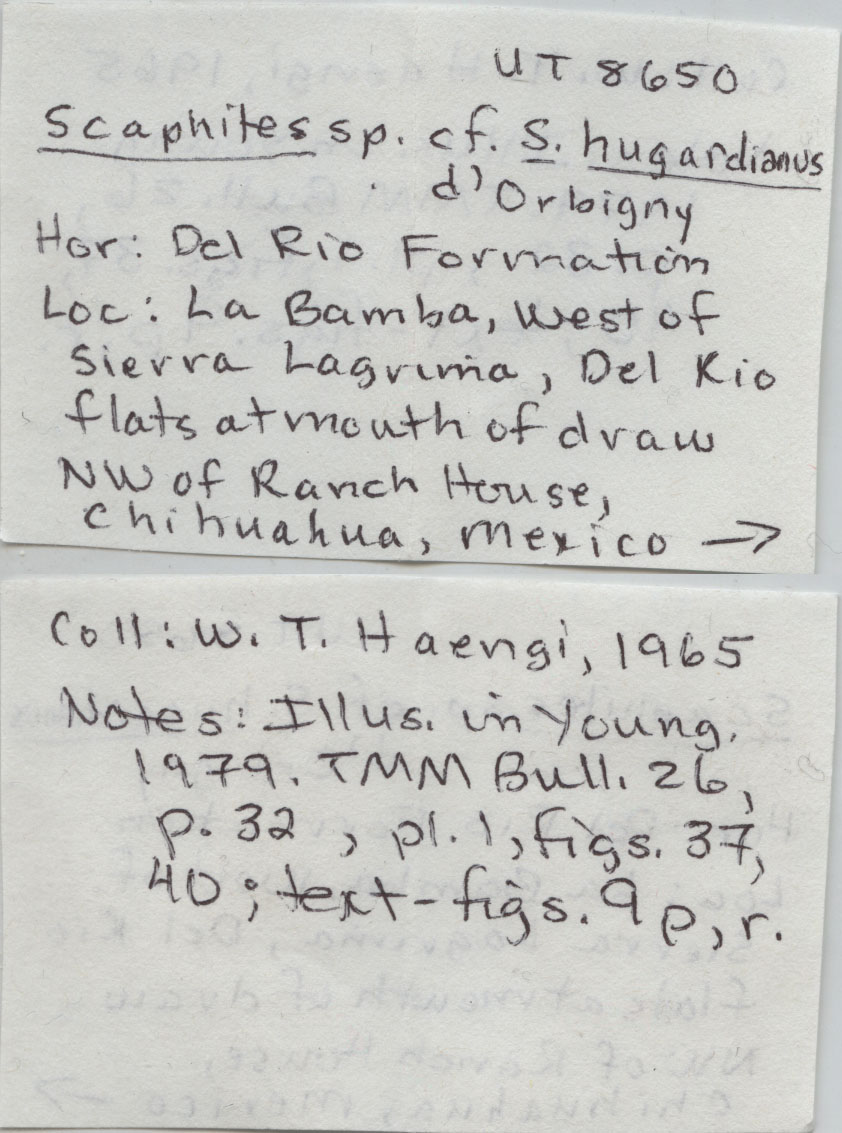 UT 8650
Scaphites sp. cf. S. hugardianus
d'Orbigny
Hor: Del Rio Formation
Loc: La Bamba, West of
Sierra Lagrima, Del Rio
flats at mouth of draw
NW of Ranch House,
Chihuahua, Mexico →
Coll: W. T. Haengi, 1965
Notes: Illus. in Young.
1979. TMM Bull. 26,
p. 32, pl. 1, figs. 37,
40; text-figs. 9 p, r.